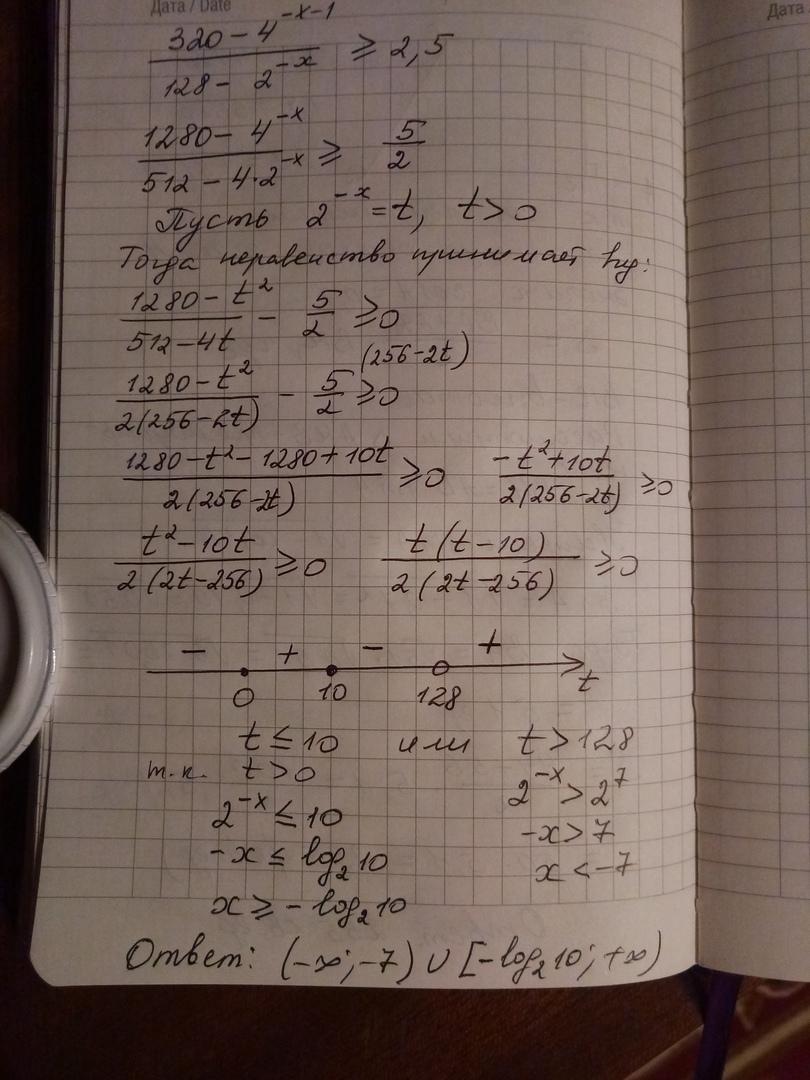 Дата / Date
Дата /
(320 - 4^(-x-1)) / (128 - 2^(-x)) ⩾ 2,5
(1280 - 4^(-x)) / (512 - 4·2^(-x)) ⩾ 5/2
Пусть 2^(-x) = t, t > 0
Тогда неравенство принимает вид:
(1280 - t²) / (512 - 4t) - 5/2 ⩾ 0
(256-2t)
(1280 - t²) / (2(256-2t)) - 5/2 ⩾ 0
(1280 - t² - 1280 + 10t) / (2(256-2t)) ⩾ 0 (-t² + 10t) / (2(256-2t)) ⩾ 0
(t² - 10t) / (2(2t-256)) ⩾ 0 (t(t-10)) / (2(2t-256)) ⩾ 0
- + - +
0 10 128 t
t ≤ 10 или t > 128
т.к. t > 0
2^(-x) ≤ 10 2^(-x) > 2^7
-x ≤ log₂10 -x > 7
x ⩾ - log₂10 x < -7
Ответ: (-∞; -7) ∪ [-log₂10; +∞)